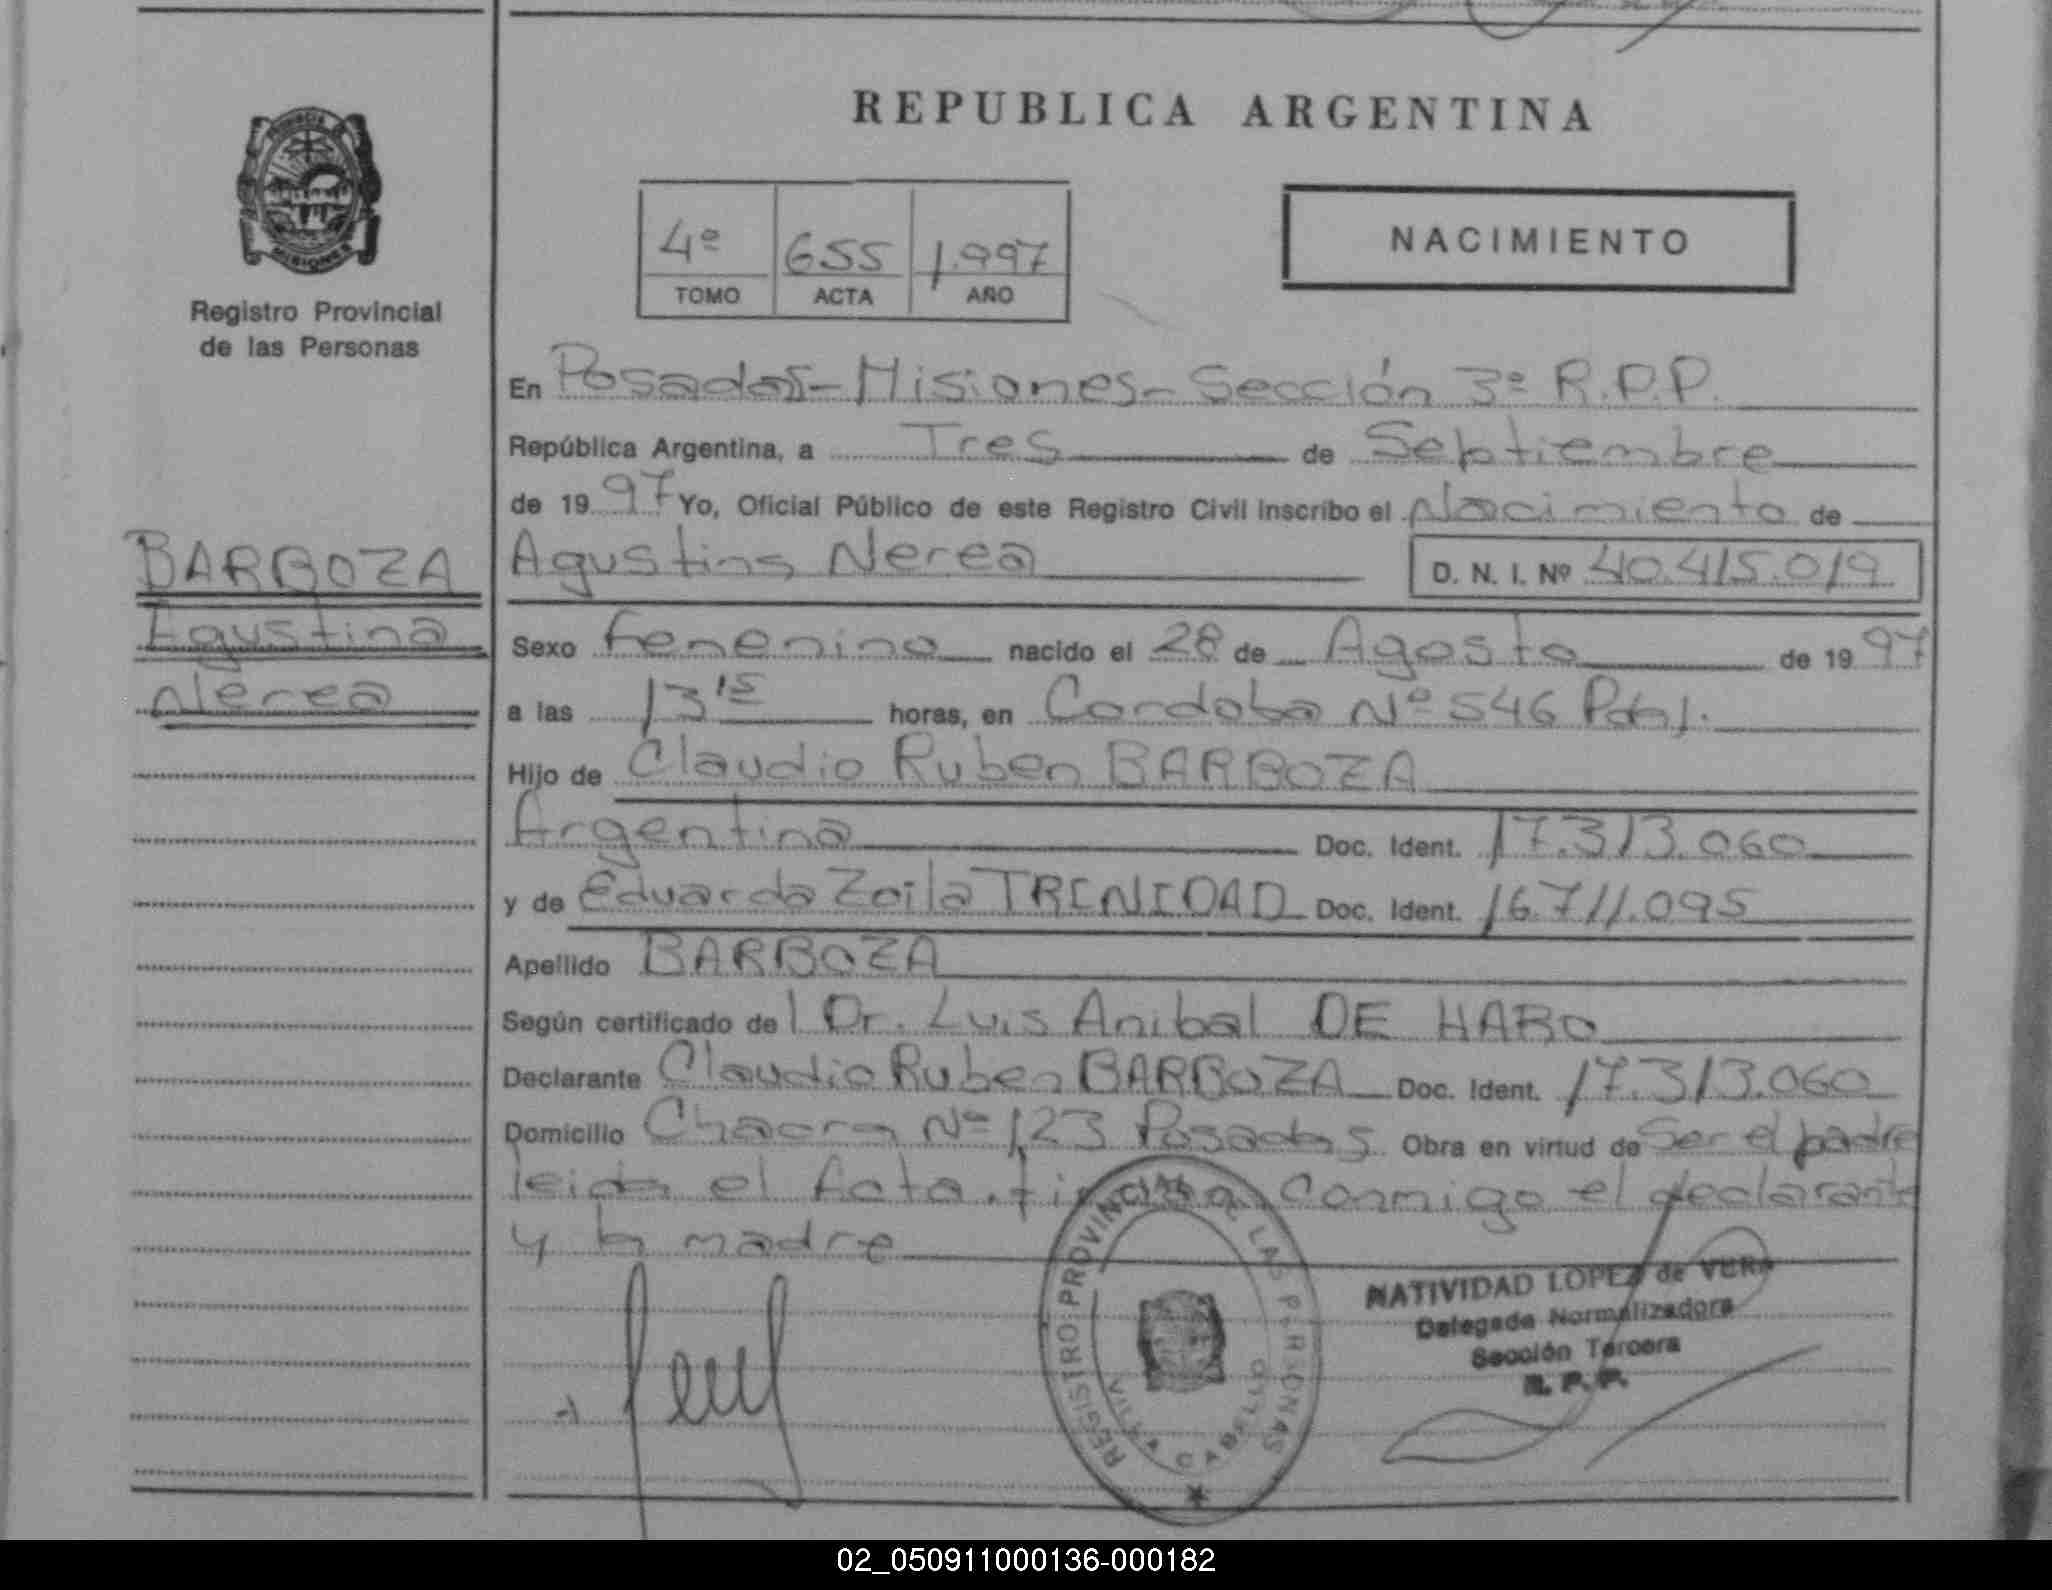 REPUBLICA ARGENTINA
4º 655 1.997
TOMO ACTA AÑO
NACIMIENTO
PROVINCIA DE
MISIONES
Registro Provincial
de las Personas
BARBOZA
Agustina
Nerea
En Posadas - Misiones - Sección 3ª R.P.P.
República Argentina, a Tres de Septiembre
de 1997 Yo, Oficial Público de este Registro Civil inscribo el Nacimiento de
Agustina Nerea D. N. I. Nº 40.415.019
Sexo Femenino nacido el 28 de Agosto de 1997
a las 13 15 horas, en Cordoba Nº 546 Pdas.
Hijo de Claudio Ruben BARBOZA
Argentina Doc. Ident. 17.313.060
y de Eduarda Zoila TRINIDAD Doc. Ident. 16.711.095
Apellido BARBOZA
Según certificado del Dr. Luis Anibal DE HARO
Declarante Claudio Ruben BARBOZA Doc. Ident. 17.313.060
Domicilio Chacra Nº 123 Posadas Obra en virtud de Ser el padre
leida el Acta, firman conmigo el declarante
y la madre
REGISTRO PROVINCIAL DE LAS PERSONAS
VILLA CABELLO
NATIVIDAD LOPEZ de VERA
Delegada Normalizadora
Sección Tercera
R. P. P.
02_050911000136-000182